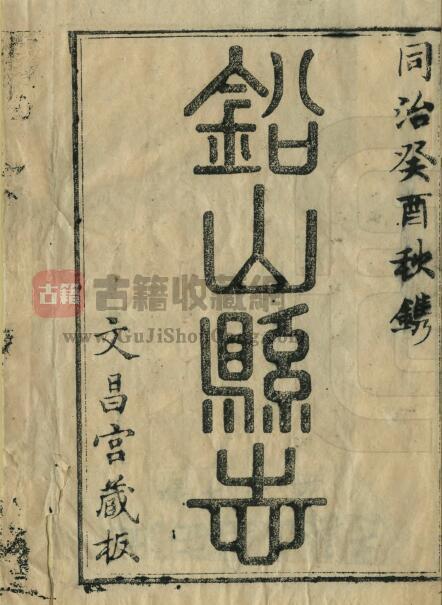 同治癸酉秋鐫
鉛山縣志
文昌宮藏板
古籍 古籍收藏網
www.GuJiShouCang.com